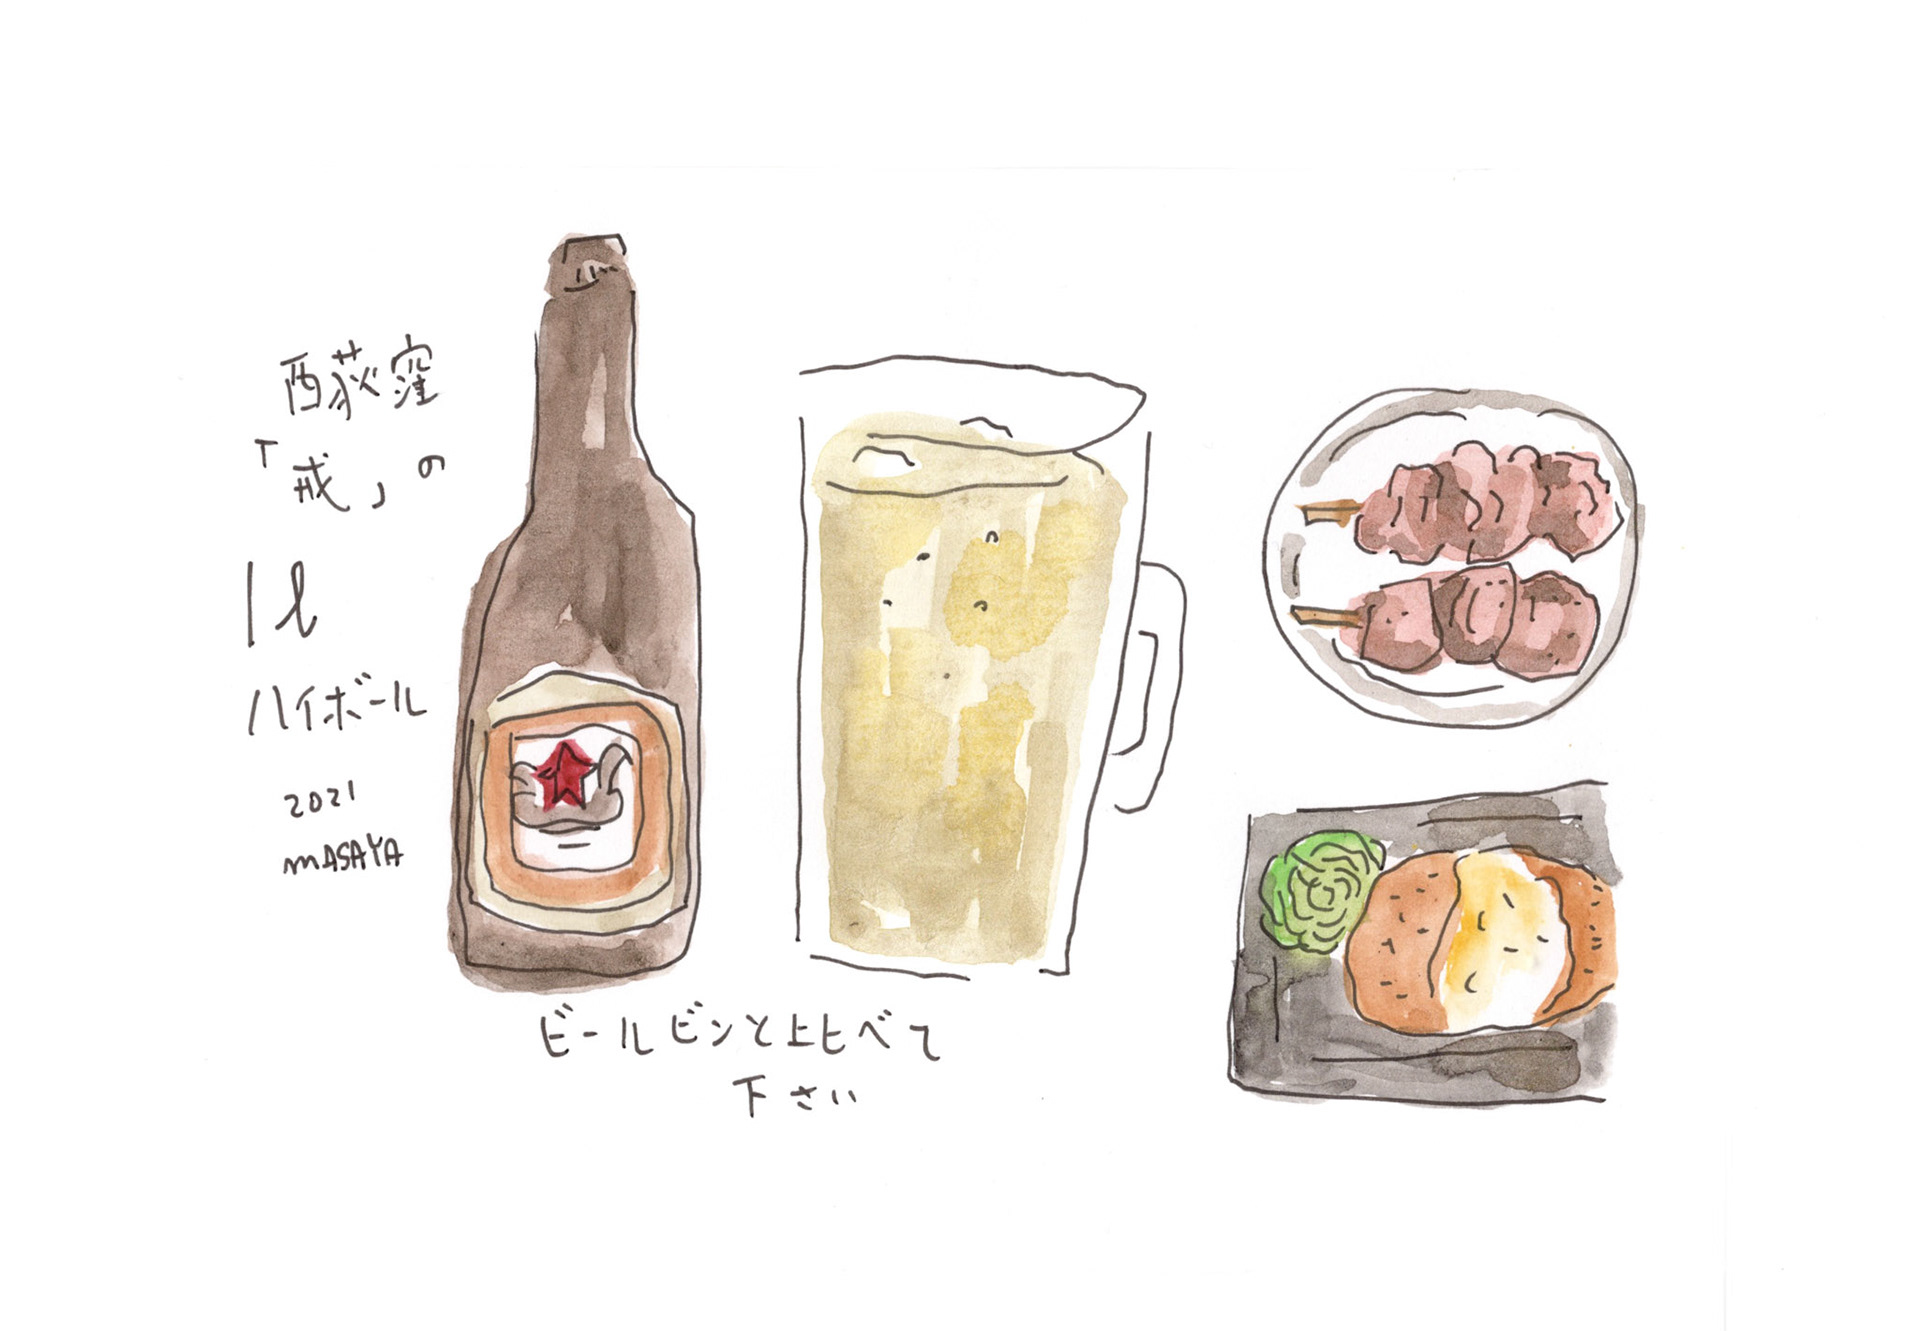 西荻窪
「戎」の
1ℓ
ハイボール
2021
MASAYA
ビールビンと比べて
下さい